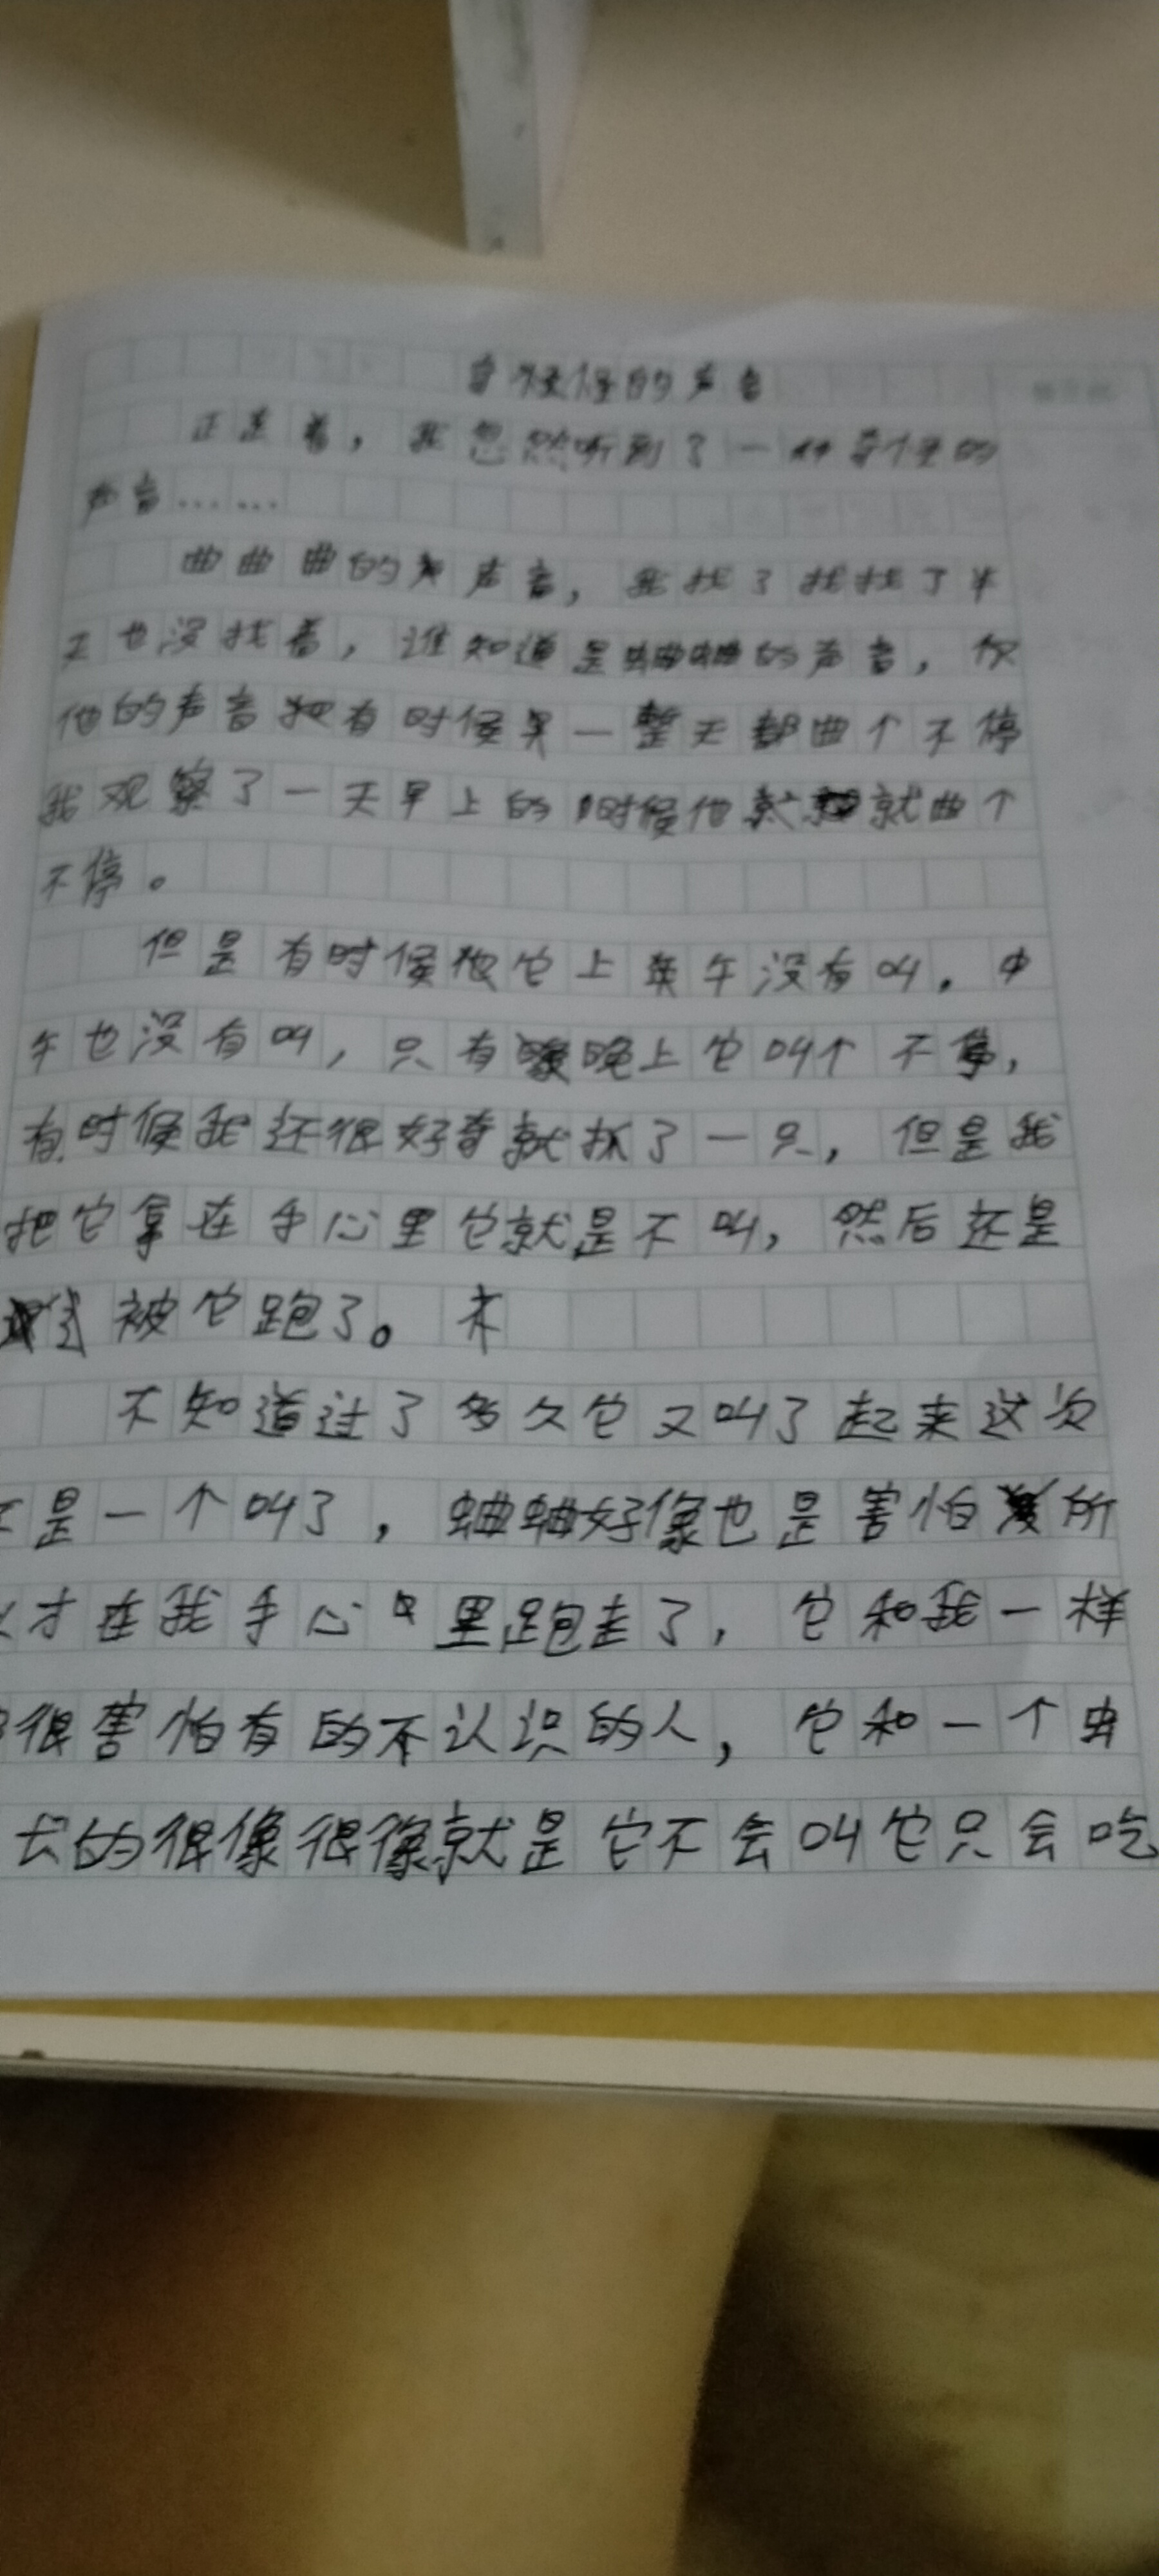 奇怪怪的声音
正走着，我忽然听到了一种奇怪的
声音……
曲曲曲的声音，我找了找找了半
天也没找着，谁知道是蛐蛐的声音，
他的声音有时候一整天都曲个不停
我观察了一天早上的时候他就就曲个
不停。
但是有时候它上午没有叫，中
午也没有叫，只有晚上它叫个不停，
有时候我还很好奇就抓了一只，但是我
把它拿在手心里它就是不叫，然后还是
被它跑了。
不知道过了多久它又叫了起来这次
是一个叫了，蛐蛐好像也是害怕所
才在我手心里跑走了，它和我一样
很害怕有的不认识的人，它和一个虫
的很像很像就是它不会叫它只会吃